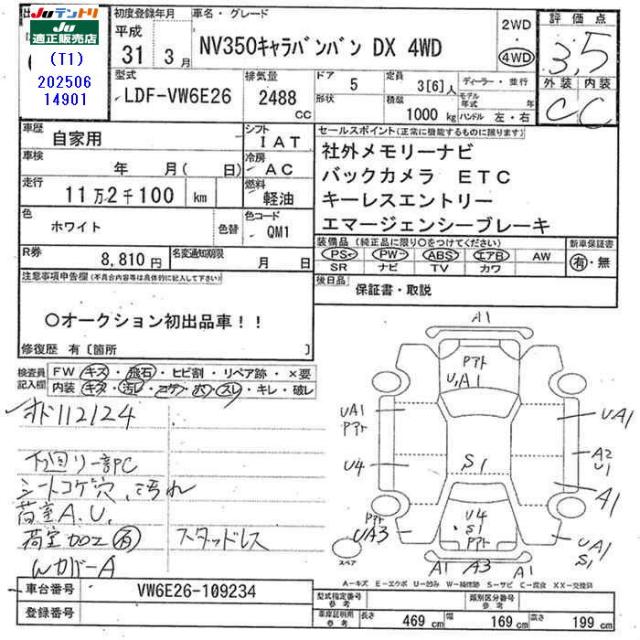 JUテントリ
JU
適正販売店
(T1)
202506
14901
初度登録年月
平成
31 3月
車名・グレード
NV350キャラバンバン DX 4WD
2WD
・
4WD
評価点
3.5
外装 内装
C C
型式
LDF-VW6E26
排気量
2488
CC
ドア
5
形状
定員
3[6]人
積載
1000 kg
ディーラー・並行
モデル年式 年
ハンドル 左・右
車歴
自家用
シフト
IAT
車検
年 月(日)
冷房
AC
走行
11万2千100 km
燃料
軽油
色
ホワイト
色替
色コード
QM1
R券
8,810円
名変通知期限
月 日
セールスポイント(正常に機能するものに限ります)
社外メモリーナビ
バックカメラ ETC
キーレスエントリー
エマージェンシーブレーキ
装備品(純正品に限り○をつけてください)
PS PW ABS エアB AW
SR ナビ TV カワ
新車保証書
有・無
後日品
保証書・取説
注意事項申告欄(不具合内容等は具体的に記入して下さい)
○オークション初出品車!!
修復歴 有[箇所 ]
検査員記入欄
FW キズ・飛石・ヒビ割・リペア跡・×要
内装 キズ・汚レ・コゲ・穴・スレ・キレ・破レ
オド112124
下回リ一部PC
シートコゲ穴、汚れ
荷室A.U.
荷室加工(有) スタッドレス
A1
アト
U,A1
UA1
アト
U4
S1
UA1
A2
U1
A1
U4
S1
アト
アト
UA3
UA1
S1
A1 A3 A1
スペア
A-キズ E-エクボ U-凹み W-補修跡 S-サビ C-腐食 XX-交換済
車台番号
VW6E26-109234
登録番号
型式指定番号
参考
類別区分番号
参考
車庫証明用
参考
長さ
469 cm
幅
169 cm
高さ
199 cm